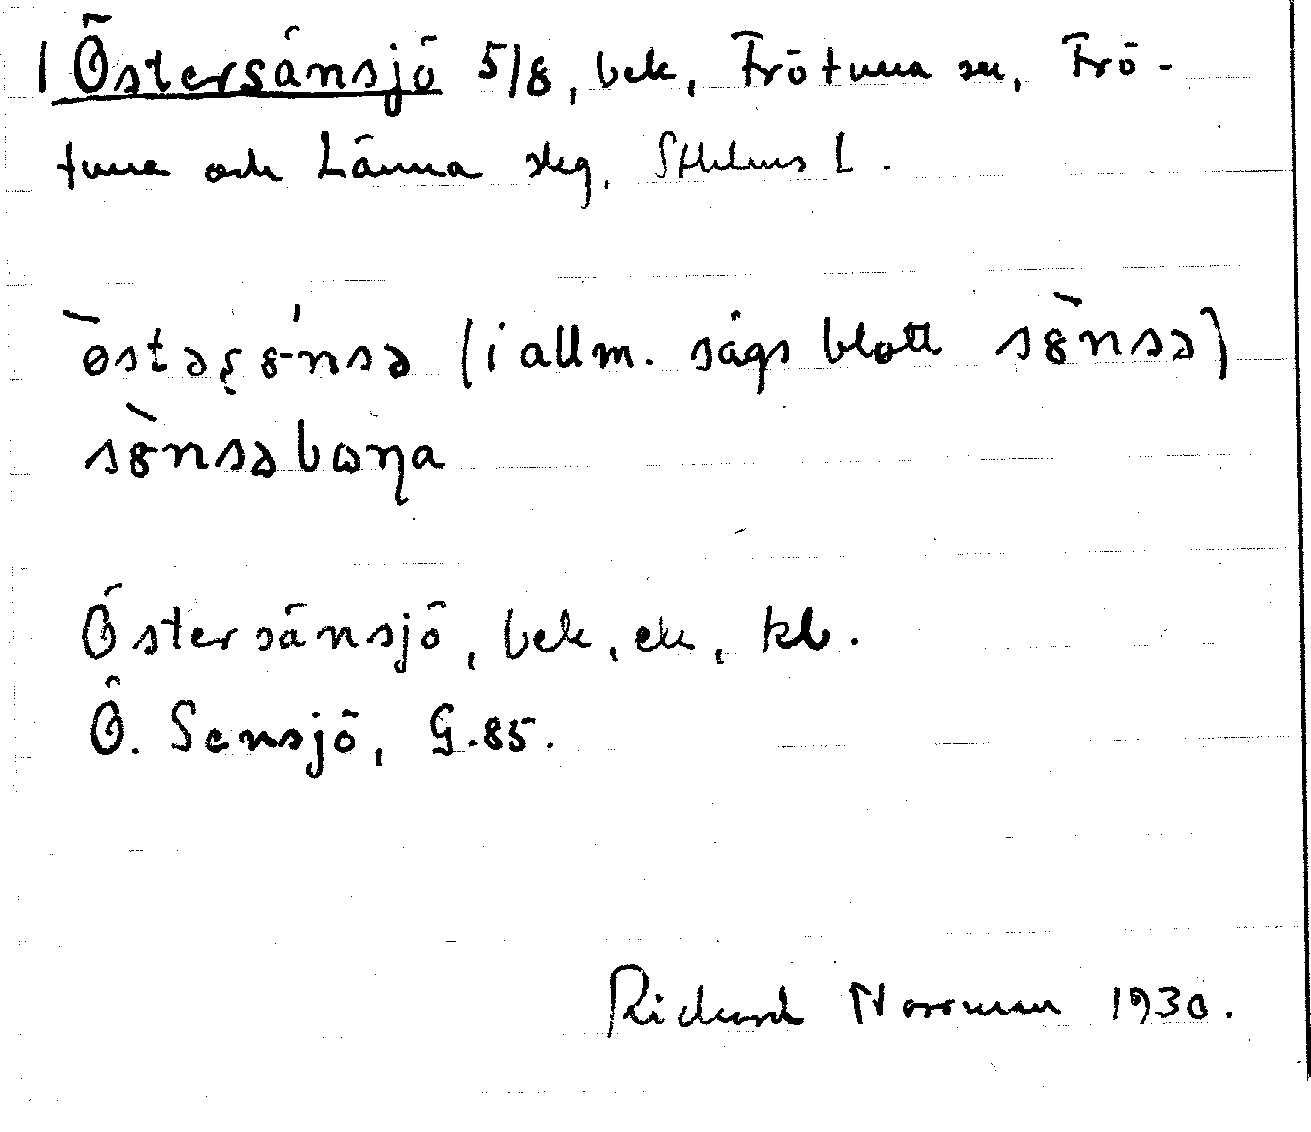 1 Östersänsjö 5/8, bek, Frötuna sn, Frö-
tuna och Länna skg, Sthlms L.
östəʂø'nsə (i allm. sägs blott sø̀nsə)
sø̀nsəbωɳa
Östersänsjö, bek, ek, kb.
Ö. Sensjö, G.85.
Rickard Norrman 1930.